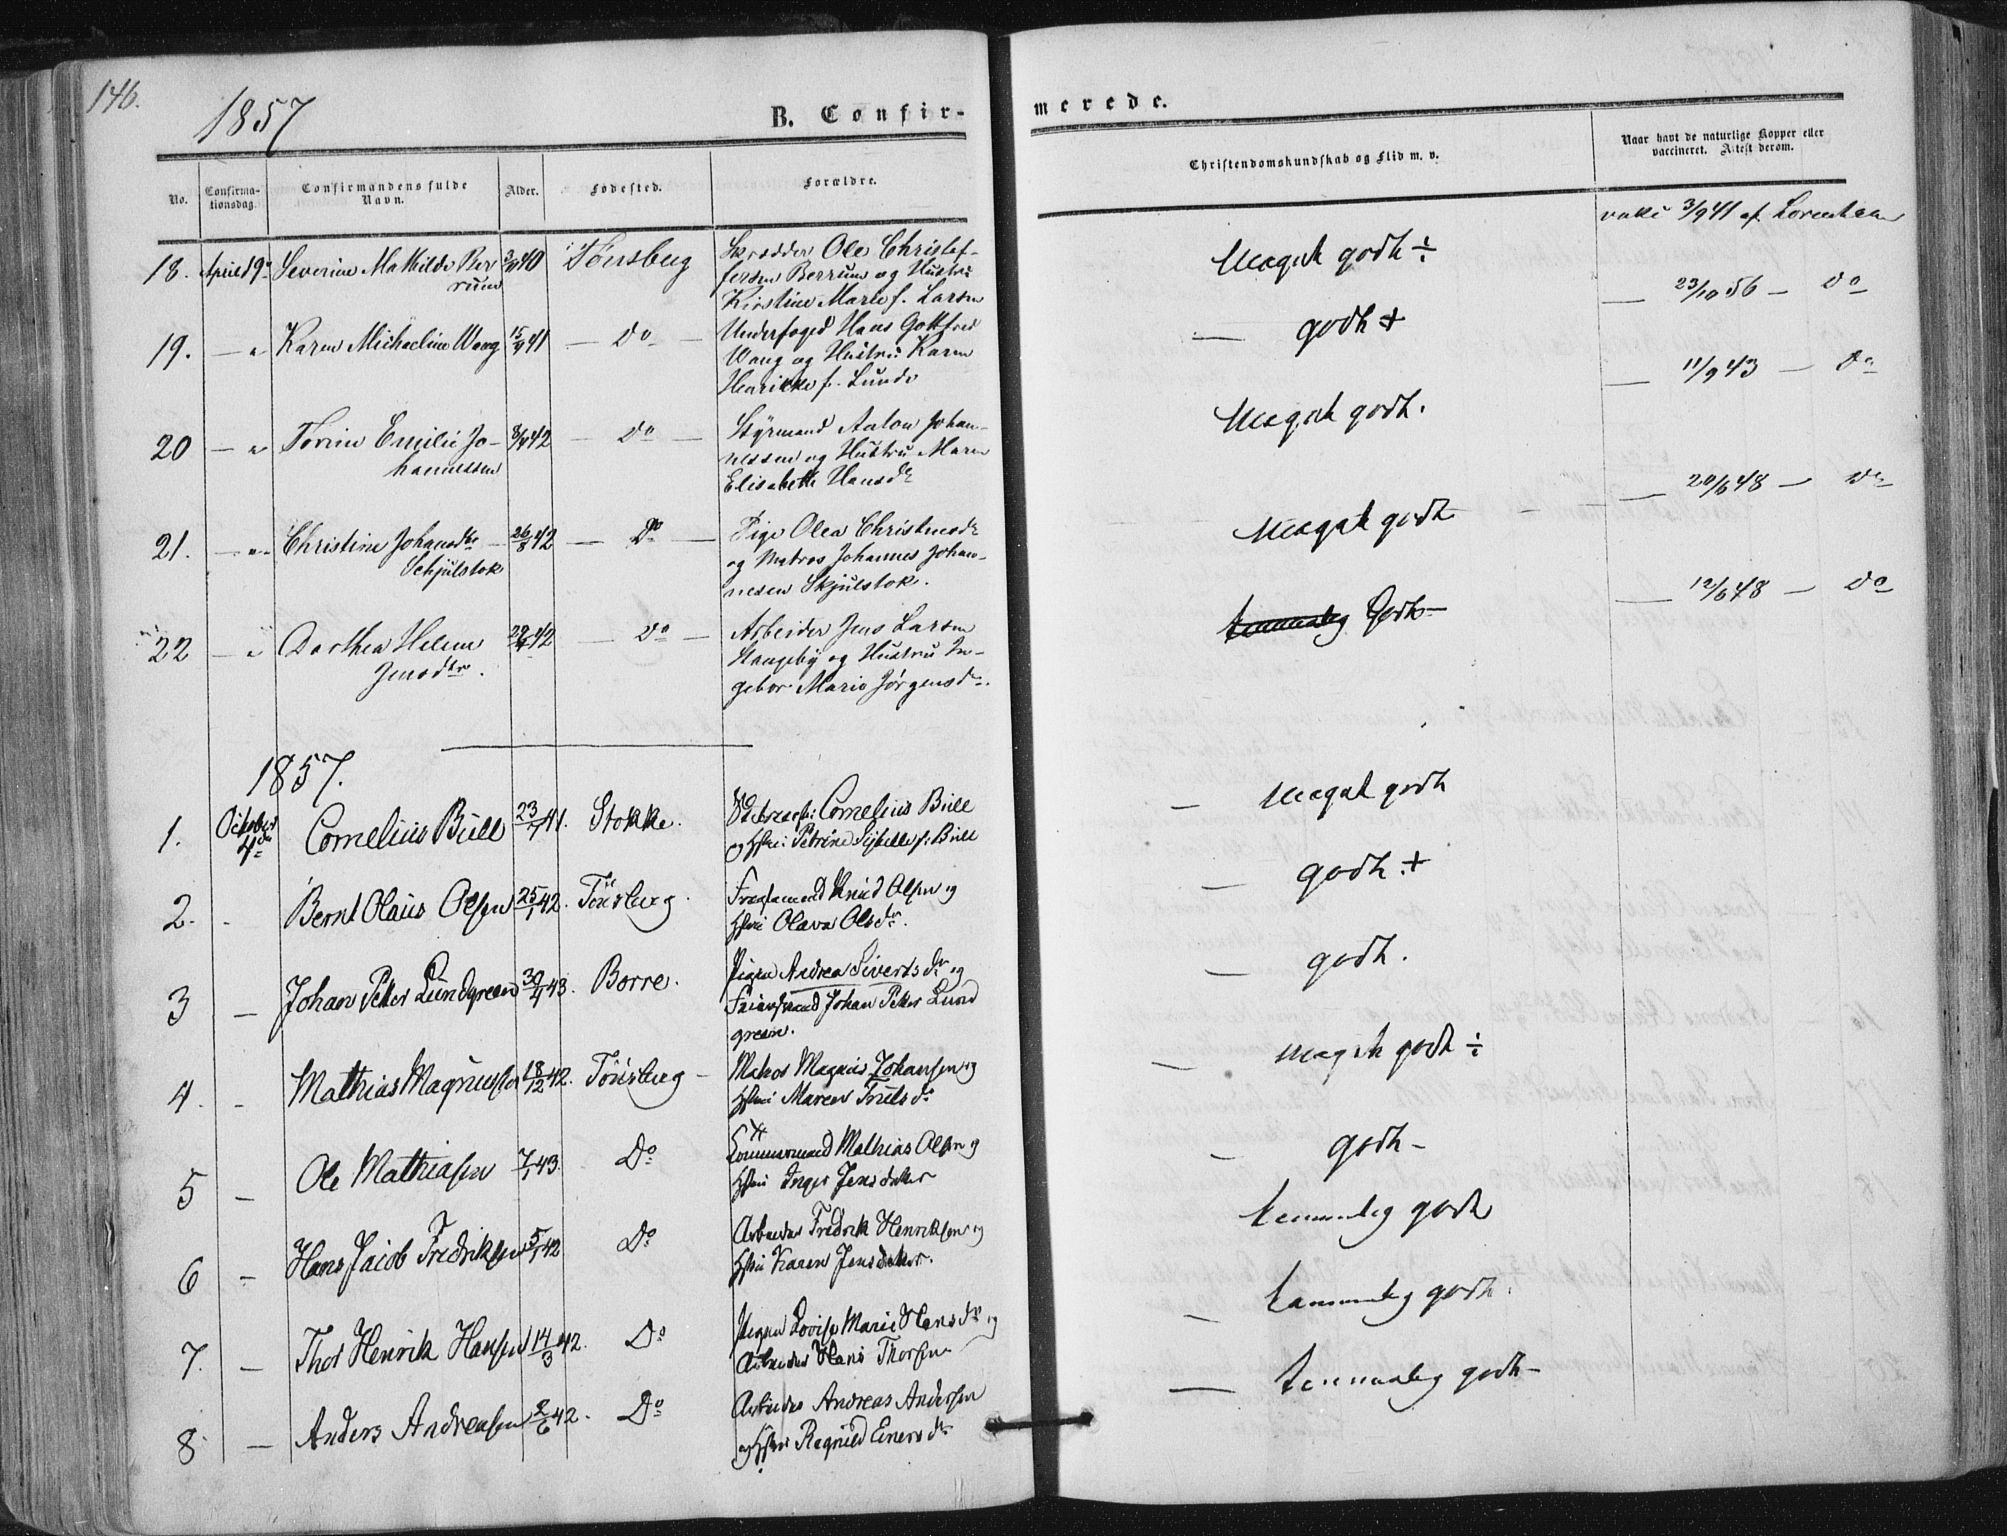 146.
1857
B. Confir-
merede.
No.
Confirma-
tionsdag.
Confirmandens fulde
Navn.
Alder.
Fødested.
Forældre.
Christendomskundskab og Flid m. v.
Naar havt de naturlige Kopper eller
vaccineret. Attest derom.
18. April 19 Severine Mathilde Ber
rum
40 Tönsberg
Skrædder Ole Christof-
fersen Berrum og Hustru
Kirstine Marie f. Larsen
Meget godt ÷
3/9 41 af Lorentzen
19. — " Karen Michaeline Wang 15/9 41 — Do —
Underfoged Hans Gottfred
Wang og Hustru Karen
Henrikke f. Lunde
— godt +
— 23/10 56 — Do
20 — " Torine Emilie Jo-
hannessen
3/4 42 — Do —
Styrmand Anton Johan-
nessen og Hustru Maren
Elisabeth Hansdr
Meget godt.
— 11/9 43 — Do
21. — " Christine Johansdtr
Schjulstok
26/8 42 — Do —
Pige Olea Christensdr
og Matros Johannes Johan-
nesen Skjulstok.
Meget godt
— 20/6 48 — Do
22 — " Dorthea Helene
Jensdtr.
42 — Do —
Arbeider Jens Larsen
Stangeby og Hustru In-
gebor Marie Jørgensdr.
Godt —
— 12/6 48 — Do
1857.
1. October
4de
Cornelius Bull 23/7 41. Stokke.
Cornelius Bull
og Hstru: Petrine Sybille f: Bull
— Meget godt
2. - Bernt Olaus Olsen 25/1 42. Tönsberg.
Knud Olsen og
Hstru Olava Olsdr.
— godt. +
3 — Johan Petter Lundgreen 30/4 43. Borre.
Pigen Andrea Sivertsdr og
Johan Petter Lund
green.
— godt.
4. - Mathias Magnussen 18/2 42. Tönsberg —
Matros Magnus Johansen og
Hstru Maren Trulsdr
— Meget godt ÷
5 — Ole Mathiasen 7/1 43. Do
Tömmermand Mathias Olsen og
Hstru Inger Jensdatter
— godt —
6 — Hans Jacob Fredriksen 5/1 42 Do
Arbeider Fredrik Henriksen og
Hstru Karen Jensdatter.
temmelig godt
7. — Thor Henrik Hansen 14/3 42. Do
Pigen Lovise Marie Hansdr og
Arbeider Hans Thorsen
— temmelig godt.
8 — Anders Andreasen 2/6 42. Do
Arbeider Andreas Andersen
og Hstru Regnild Einersdr
— temmelig godt —